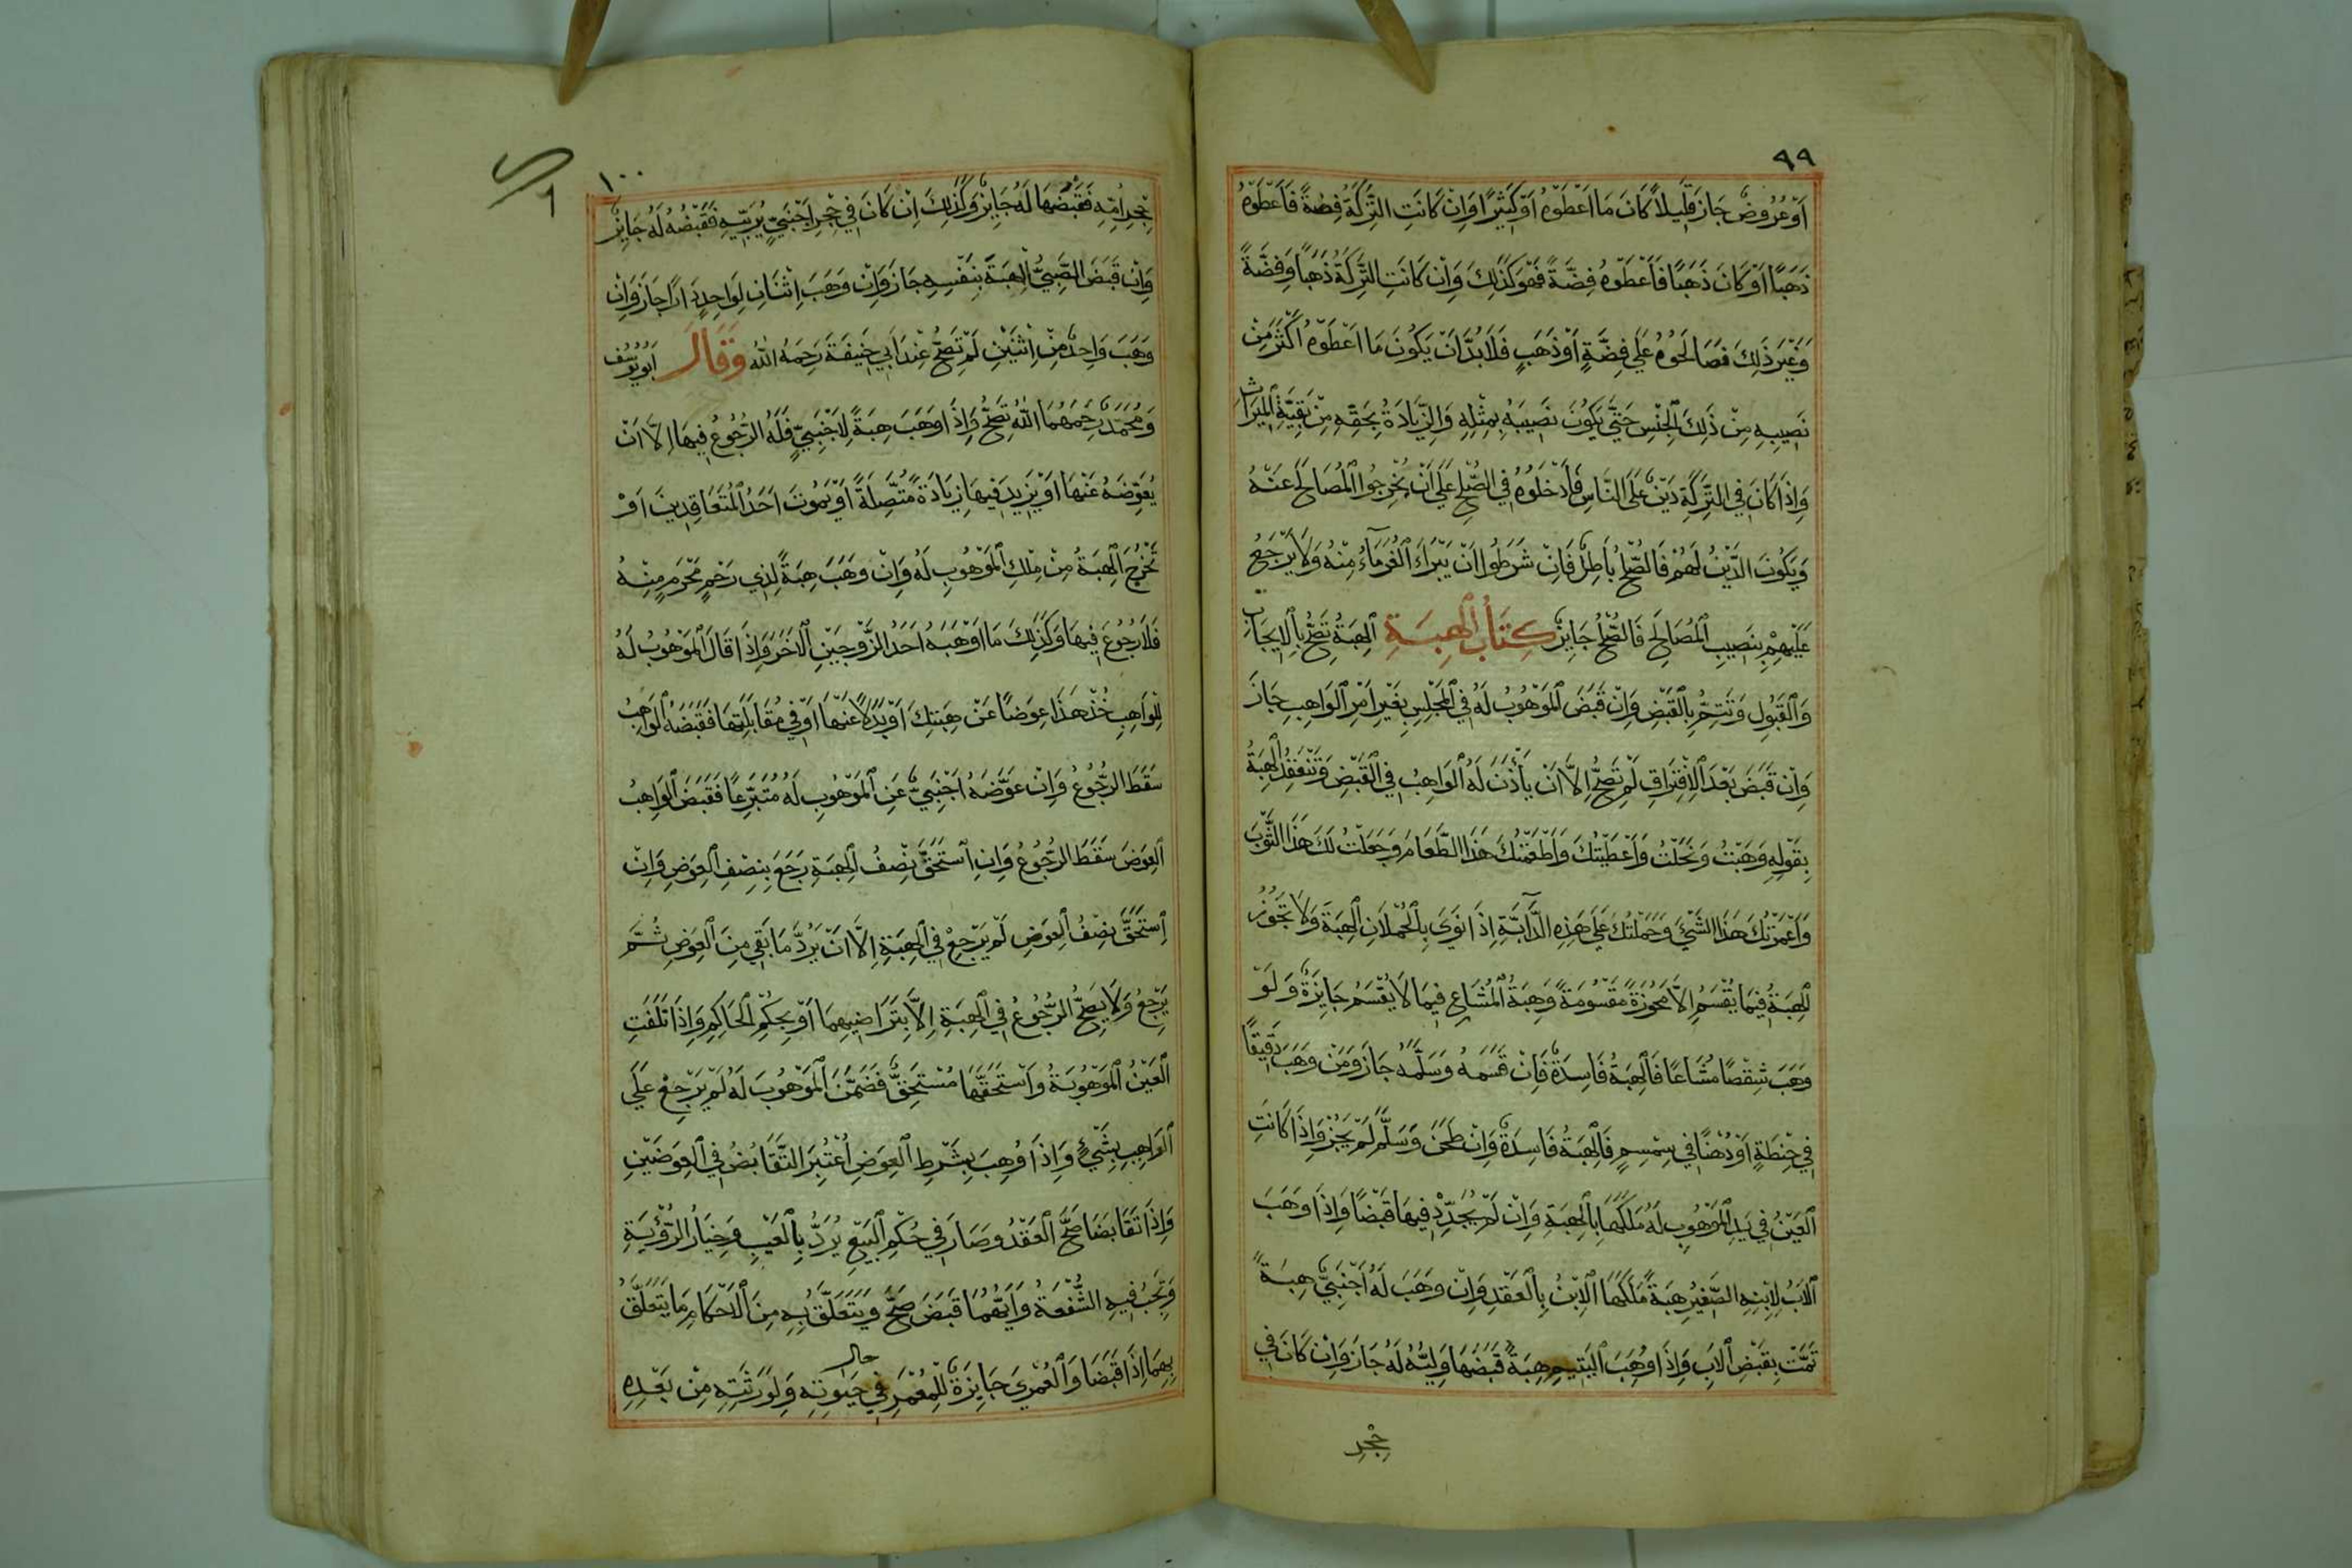 ٩٩
اَوْ عُرُوضٌ جَازَ قَلِيلاً كَانَ مَا اَعْطَوْهُ اَوْ كَثِيْرًا وَاِنْ كَانَتِ التَّرِكَةُ فِضَّةً فَاَعْطَوْهُ
ذَهَبًا اَوْ كَانَ ذَهَبًا فَاَعْطَوْهُ فِضَّةً فَهُوَ كَذَلِكَ وَاِنْ كَانَتِ التَّرِكَةُ ذَهَبًا وَفِضَّةً
وَغَيْرَ ذَلِكَ فَصَالَحُوهُ عَلَى فِضَّةٍ اَوْ ذَهَبٍ فَلَا بُدَّ اَنْ يَكُونَ مَا اَعْطَوْهُ اَكْثَرَ مِنْ
نَصِيبِهِ مِنْ ذَلِكَ الْجِنْسِ حَتَّى يَكُونَ نَصِيبُهُ بِمِثْلِهِ وَالزِّيَادَةُ بِحَقِّهِ مِنْ بَقِيَّةِ الْمِيرَاثِ
وَاِذَا كَانَ فِي التَّرِكَةِ دَيْنٌ عَلَى النَّاسِ فَاَدْخَلُوهُ فِي الصُّلْحِ عَلَى اَنْ يُخْرِجُوا الْمُصَالَحَ عَنْهُ
وَيَكُونَ الدَّيْنُ لَهُمْ فَالصُّلْحُ بَاطِلٌ فَاِنْ شَرَطُوا اَنْ يَبْرَاَ الْغُرَمَاءُ مِنْهُ وَلَا يَرْجِعُ
عَلَيْهِمْ بِنَصِيبِ الْمُصَالِحِ فَالصُّلْحُ جَايِزٌ كِتَابُ الْهِبَةِ اَلْهِبَةُ تَصِحُّ بِالْاِيجَابِ
وَالْقَبُولِ وَتَتِمُّ بِالْقَبْضِ وَاِنْ قَبَضَ الْمَوْهُوبُ لَهُ فِي الْمَجْلِسِ بِغَيْرِ اَمْرِ الْوَاهِبِ جَازَ
وَاِنْ قَبَضَ بَعْدَ الْاِفْتِرَاقِ لَمْ تَصِحَّ اِلَّا اَنْ يَأْذَنَ لَهُ الْوَاهِبُ فِي الْقَبْضِ وَتَنْعَقِدُ الْهِبَةُ
بِقَوْلِهِ وَهَبْتُ وَنَحَلْتُ وَاَعْطَيْتُكَ وَاَطْعَمْتُكَ هَذَا الطَّعَامَ وَجَعَلْتُ لَكَ هَذَا الثَّوْبَ
وَاَعْمَرْتُكَ هَذَا الشَّيْءَ وَحَمَلْتُكَ عَلَى هَذِهِ الدَّآبَّةِ اِذَا نَوَى بِالْحُمْلَانِ الْهِبَةَ وَلَا تَجُوزُ
الْهِبَةُ فِيمَا يُقْسَمُ اِلَّا مَحُوزَةً مَقْسُومَةً وَهِبَةُ الْمُشَاعِ فِيمَا لَا يُقْسَمُ جَايِزَةٌ وَلَوْ
وَهَبَ شِقْصًا مُشَاعًا فَالْهِبَةُ فَاسِدَةٌ فَاِنْ قَسَمَهُ وَسَلَّمَهُ جَازَ وَمَنْ وَهَبَ دَقِيقًا
فِي حِنْطَةٍ اَوْ دُهْنًا فِي سِمْسِمٍ فَالْهِبَةُ فَاسِدَةٌ وَاِنْ طَحَنَ وَسَلَّمَ لَمْ يَجُزْ وَاِذَا كَانَتِ
الْعَيْنُ فِي يَدِ الْمَوْهُوبِ لَهُ مَلَكَهَا بِالْهِبَةِ وَاِنْ لَمْ يُجَدِّدْ فِيهَا قَبْضًا وَاِذَا وَهَبَ
الْاَبُ لِاِبْنِهِ الصَّغِيْرِ هِبَةً مَلَكَهَا الْاِبْنُ بِالْعَقْدِ وَاِنْ وَهَبَ لَهُ اَجْنَبِيٌّ هِبَةً
تَمَّتْ بِقَبْضِ الْاَبِ وَاِذَا وُهِبَ الْيَتِيمِ هِبَةً قَبَضَهَا وَلِيُّهُ لَهُ جَازَ وَاِنْ كَانَ فِي
حِجْرِ
١٠٠
حِجْرِ اُمِّهِ فَقَبْضُهَا لَهُ جَايِزٌ وَكَذَلِكَ اِنْ كَانَ فِي حِجْرِ اَجْنَبِيٍّ يُرَبِّيهِ فَقَبْضُهُ لَهُ جَايِزٌ
وَاِنْ قَبَضَ الصَّبِيُّ الْهِبَةَ بِنَفْسِهِ جَازَ وَاِنْ وَهَبَ اِثْنَانِ لِوَاحِدٍ دَارًا جَازَ وَاِنْ
وَهَبَ وَاحِدٌ مِنْ اِثْنَيْنِ لَمْ تَصِحَّ عِنْدَ اَبِي حَنِيفَةَ رَحِمَهُ اللّٰهُ وَقَالَ اَبُو يُوسُفَ
وَمُحَمَّدٌ رَحِمَهُمَا اللّٰهُ تَصِحُّ وَاِذَا وَهَبَ هِبَةً لِاَجْنَبِيٍّ فَلَهُ الرُّجُوعُ فِيهَا اِلَّا اَنْ
يُعَوِّضَهُ عَنْهَا اَوْ يَزِيدَ فِيهَا زِيَادَةً مُتَّصِلَةً اَوْ يَمُوتَ اَحَدُ الْمُتَعَاقِدِينَ اَوْ
تَخْرُجَ الْهِبَةُ مِنْ مِلْكِ الْمَوْهُوبِ لَهُ وَاِنْ وَهَبَ هِبَةً لِذِي رَحِمٍ مَحْرَمٍ مِنْهُ
فَلَا رُجُوعَ فِيهَا وَكَذَلِكَ مَا اَوْهَبَهُ اَحَدُ الزَّوْجَيْنِ الْاَخَرَ وَاِذَا قَالَ الْمَوْهُوبُ لَهُ
لِلْوَاهِبِ خُذْ هَذَا عِوَضًا عَنْ هِبَتِكَ اَوْ بَدَلًا عَنْهَا اَوْ فِي مُقَابَلَتِهَا فَقَبَضَهُ الْوَاهِبُ
سَقَطَ الرُّجُوعُ وَاِنْ عَوَّضَهُ اَجْنَبِيٌّ عَنِ الْمَوْهُوبِ لَهُ مُتَبَرِّعًا فَقَبَضَ الْوَاهِبُ
الْعِوَضَ سَقَطَ الرُّجُوعُ وَاِنِ اسْتَحَقَّ نِصْفُ الْهِبَةِ رَجَعَ بِنِصْفِ الْعِوَضِ وَاِنْ
اِسْتَحَقَّ نِصْفُ الْعِوَضِ لَمْ يَرْجِعْ فِي الْهِبَةِ اِلَّا اَنْ يَرُدَّ مَا بَقِيَ مِنَ الْعِوَضِ ثُمَّ
يَرْجِعُ وَلَا يَصِحُّ الرُّجُوعُ فِي الْهِبَةِ اِلَّا بِتَرَاضِيهِمَا اَوْ بِحُكْمِ الْحَاكِمِ وَاِذَا تَلَفَتِ
الْعَيْنُ الْمَوْهُوبَةُ وَاسْتَحَقَّهَا مُسْتَحِقٌّ فَضَمَّنَ الْمَوْهُوبَ لَهُ لَمْ يَرْجِعْ عَلَى
الْوَاهِبِ بِشَيْءٍ وَاِذَا وُهِبَ بِشَرْطِ الْعِوَضِ اُعْتُبِرَ التَّقَابُضُ فِي الْعِوَضَيْنِ
وَاِذَا تَقَابَضَا صَحَّ الْعَقْدُ وَصَارَ فِي حُكْمِ الْبَيْعِ يُرَدُّ بِالْعَيْبِ وَخِيَارُ الرُّؤْيَةِ
وَتَجِبُ فِيهِ الشُّفْعَةُ وَاَيُّهُمَا قَبَضَ صَحَّ وَيَتَعَلَّقُ بِهِ مِنَ الْاَحْكَامِ مَا يَتَعَلَّقُ
بِهِمَا اِذَا قَبَضَا وَالْعُمْرَى جَايِزَةٌ لِلْمُعْمَرِ فِي حال حَيٰوتِهِ وَلِوَرَثَتِهِ مِنْ بَعْدِهِ